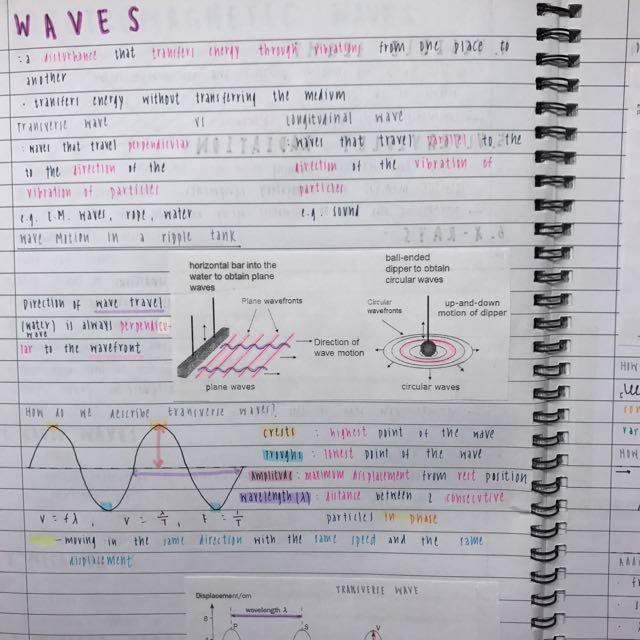 WAVES
: a disturbance that transfers energy through vibrations from one place to
another
· transfers energy without transferring the medium
Transverse wave vs Longitudinal wave
: waves that travel perpendicular
to the direction of the
vibration of particles
e.g. E.M. waves, rope, water
: waves that travel parallel to the
direction of the vibration of
particles
e.g: sound
Wave Motion in a ripple tank
horizontal bar into the
water to obtain plane
waves
Plane wavefronts
Direction of
wave motion
plane waves
ball-ended
dipper to obtain
circular waves
Circular
wavefronts
up-and-down
motion of dipper
circular waves
Direction of wave travel
(water) wave is always perpendicu-
lar to the wavefront
How do we describe transverse waves?
crests : highest point of the wave
troughs : lowest point of the wave
Amplitude : maximum displacement from rest position
wavelength (λ) : distance between 2 consecutive
particles in phase
v = fλ , v = λ/T , F = 1/T
moving in the same direction with the same speed and the same
displacement
TRANSVERSE WAVE
Displacement/cm
wavelength λ
8
P
S
V
HOW
HOW